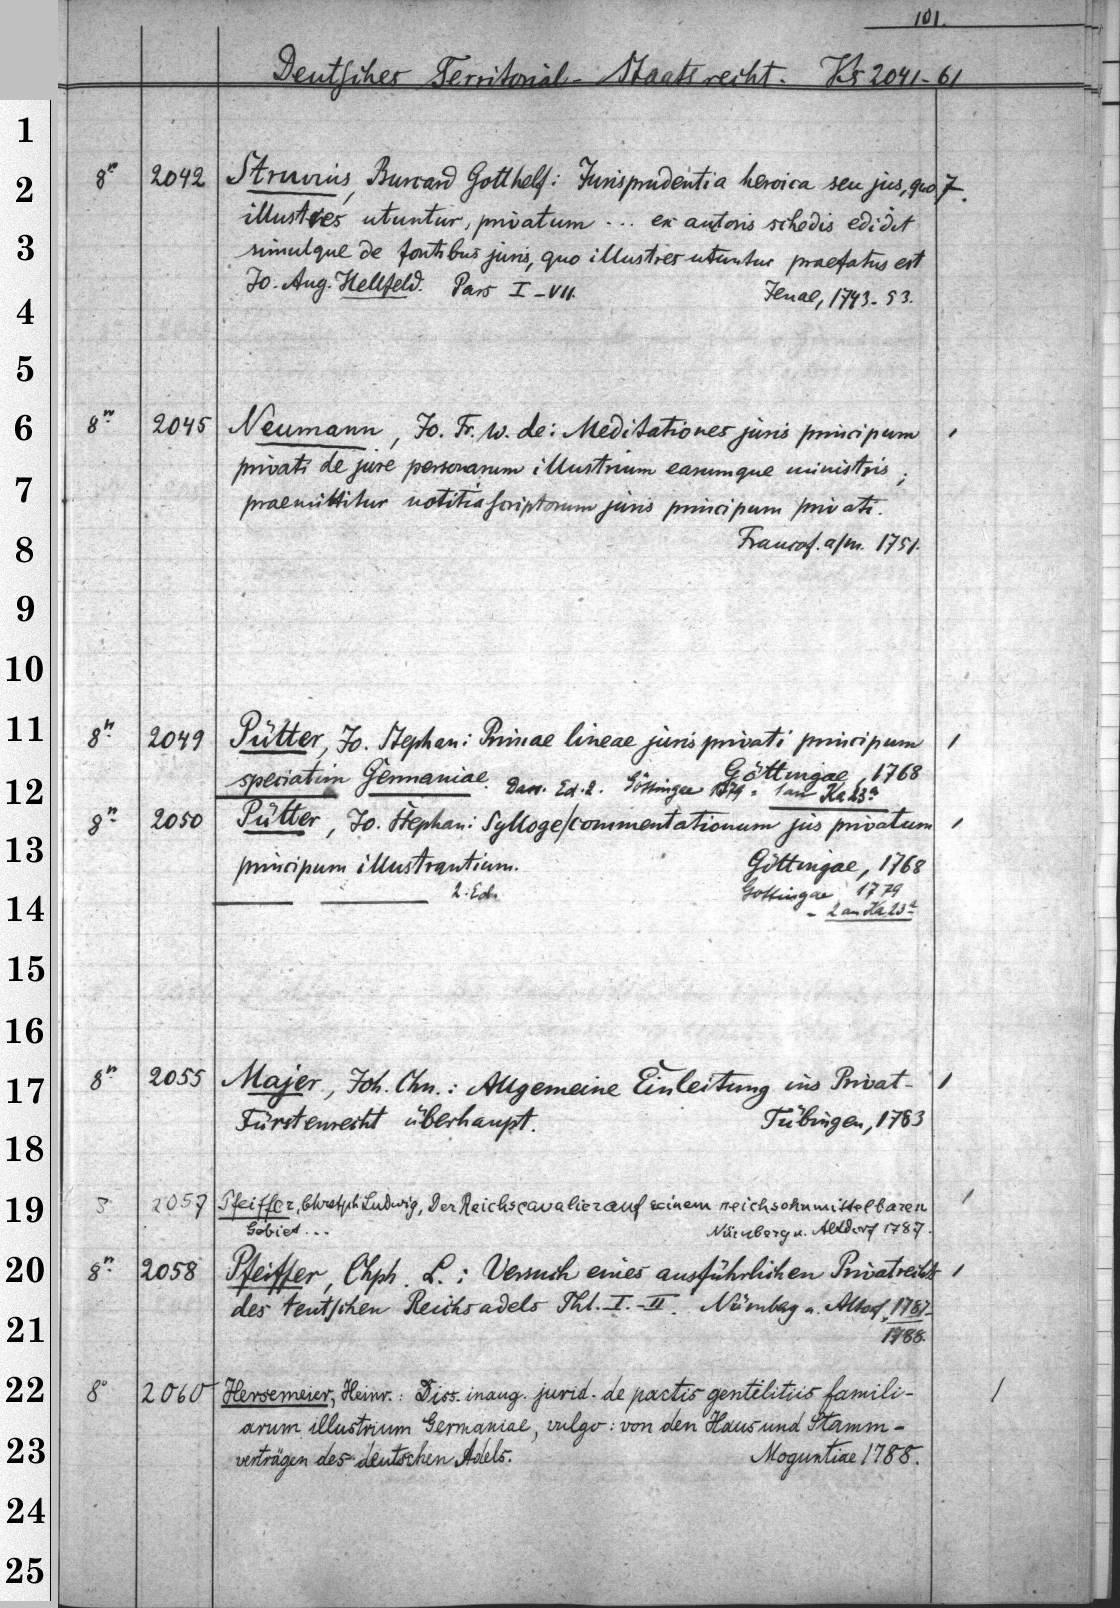 101.
Deutsches Territorial-Staatsrecht. Ks 2041-61
1
8° 2042 Struvius, Burcard Gotthelf: Jurisprudentia heroica seu jus, quo 7.
2
illustres utuntur, privatum ... ex autoris schedis edidit
3
simulque de fontibus juris, quo illustres utuntur praefatus est
Jo. Aug. Hellfeld. Pars I-VII. Jenae, 1743-53.
4
5
6 8° 2045 Neumann, Jo. Fr. W. de: Meditationes juris principum 1
privati de jure personarum illustrium earumque ministris;
7
praemittitur notitia scriptorum juris principum privati.
8 Francof. a/m. 1751.
9
10
11 8° 2049 Pütter, Jo. Stephan: Primae lineae juris privati principum 1
speciatim Germaniae. Göttingae, 1768
12 Dass. Ed. 2. Göttingae 1779 = 1 an Ka 23a
8° 2050 Pütter, Jo. Stephan: Sylloge commentationum jus privatum 1
13
principum illustrantium. Göttingae, 1768
2. Ed. Gottingae 1779
14 - 2 an Ka 23a
15
16
17 8° 2055 Majer, Joh. Chn.: Allgemeine Einleitung ins Privat- 1
Fürstenrecht überhaupt. Tübingen, 1783
18
19 2057 Pfeiffer, Christph Ludwig, Der Reichscavalier auf seinem reichsohnmittelbaren 1
Gebiet ... Nürnberg u. Altdorf 1787.
20 8° 2058 Pfeiffer, Chph. L.: Versuch eines ausführlichen Privatrechts 1
des teutschen Reichsadels Thl. I.-II. Nürnbag u. Altdorf, 1787-
21 1788.
22 8° 2060 Hersemeier, Heinr.: Diss. inaug. jurid. de pactis gentilitiis famili- 1
arum illustrium Germaniae, vulgo: von den Haus und Stamm-
23 verträgen des deutschen Adels. Moguntiae 1788.
24
25